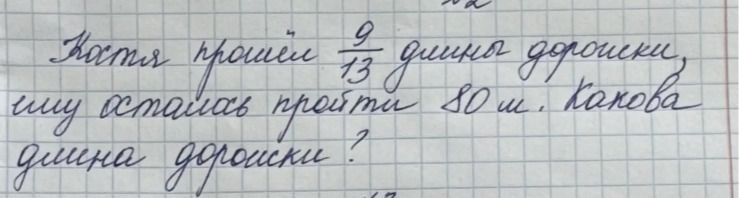 Костя прошёл 9/13 длины дорожки,
ему осталось пройти 80 м. Какова
длина дорожки?